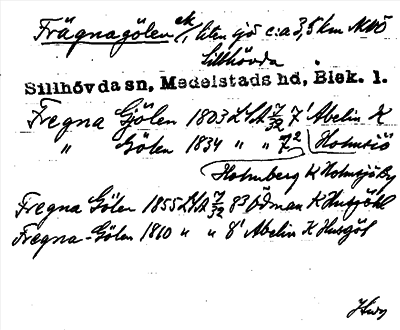 Frägnagölen ek/, liten sjö c:a 3,5 km NNÖ
Sillhövda
Sillhövda sn, Medelstads hd, Blek. l.
Fregna Gjölen 1803 LSA 7/32 7¹ Abelin K
" Gölen 1834 " " 7² Holmsjö
Holmberg K Holmsjöby
Fregna Gölen 1855 LSA 7/32 8³ Ödman K
Fregna-Gölen 1860 " " 8¹ Abelin K